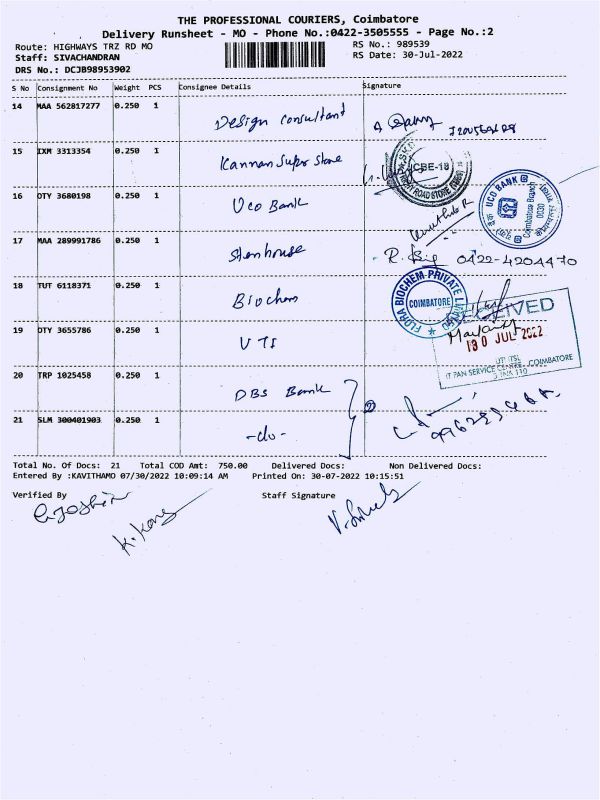 THE PROFESSIONAL COURIERS, Coimbatore
Delivery Runsheet - MO - Phone No.:0422-3505555 - Page No.:2
Route: HIGHWAYS TRZ RD MO RS No.: 989539
Staff: SIVACHANDRAN RS Date: 30-Jul-2022
DRS No.: DCJB98953902
S No Consignment No Weight PCS Consignee Details Signature
14 MAA 562817277 0.250 1
Design Consultant
15 IXM 3313354 0.250 1
Kannan Super Store
CBE-18
16 OTY 3680198 0.250 1
Uco Bank
UCO BANK
Coimbatore Branch
0030
17 MAA 289991786 0.250 1
Stenhouse
R. 0422-4204470
18 TUT 6118371 0.250 1
Biochem
FLORA BIOCHEM PRIVATE LIMITED
COIMBATORE
RECEIVED
19 OTY 3655786 0.250 1
UTI
30 JUL 2022
UTIITSL
IT PAN SERVICE CENTRE, COIMBATORE
20 TRP 1025458 0.250 1
DBS Bank
2
21 SLM 300401903 0.250 1
-do-
Total No. Of Docs: 21 Total COD Amt: 750.00 Delivered Docs: Non Delivered Docs:
Entered By :KAVITHAMO 07/30/2022 10:09:14 AM Printed On: 30-07-2022 10:15:51
Verified By Staff Signature